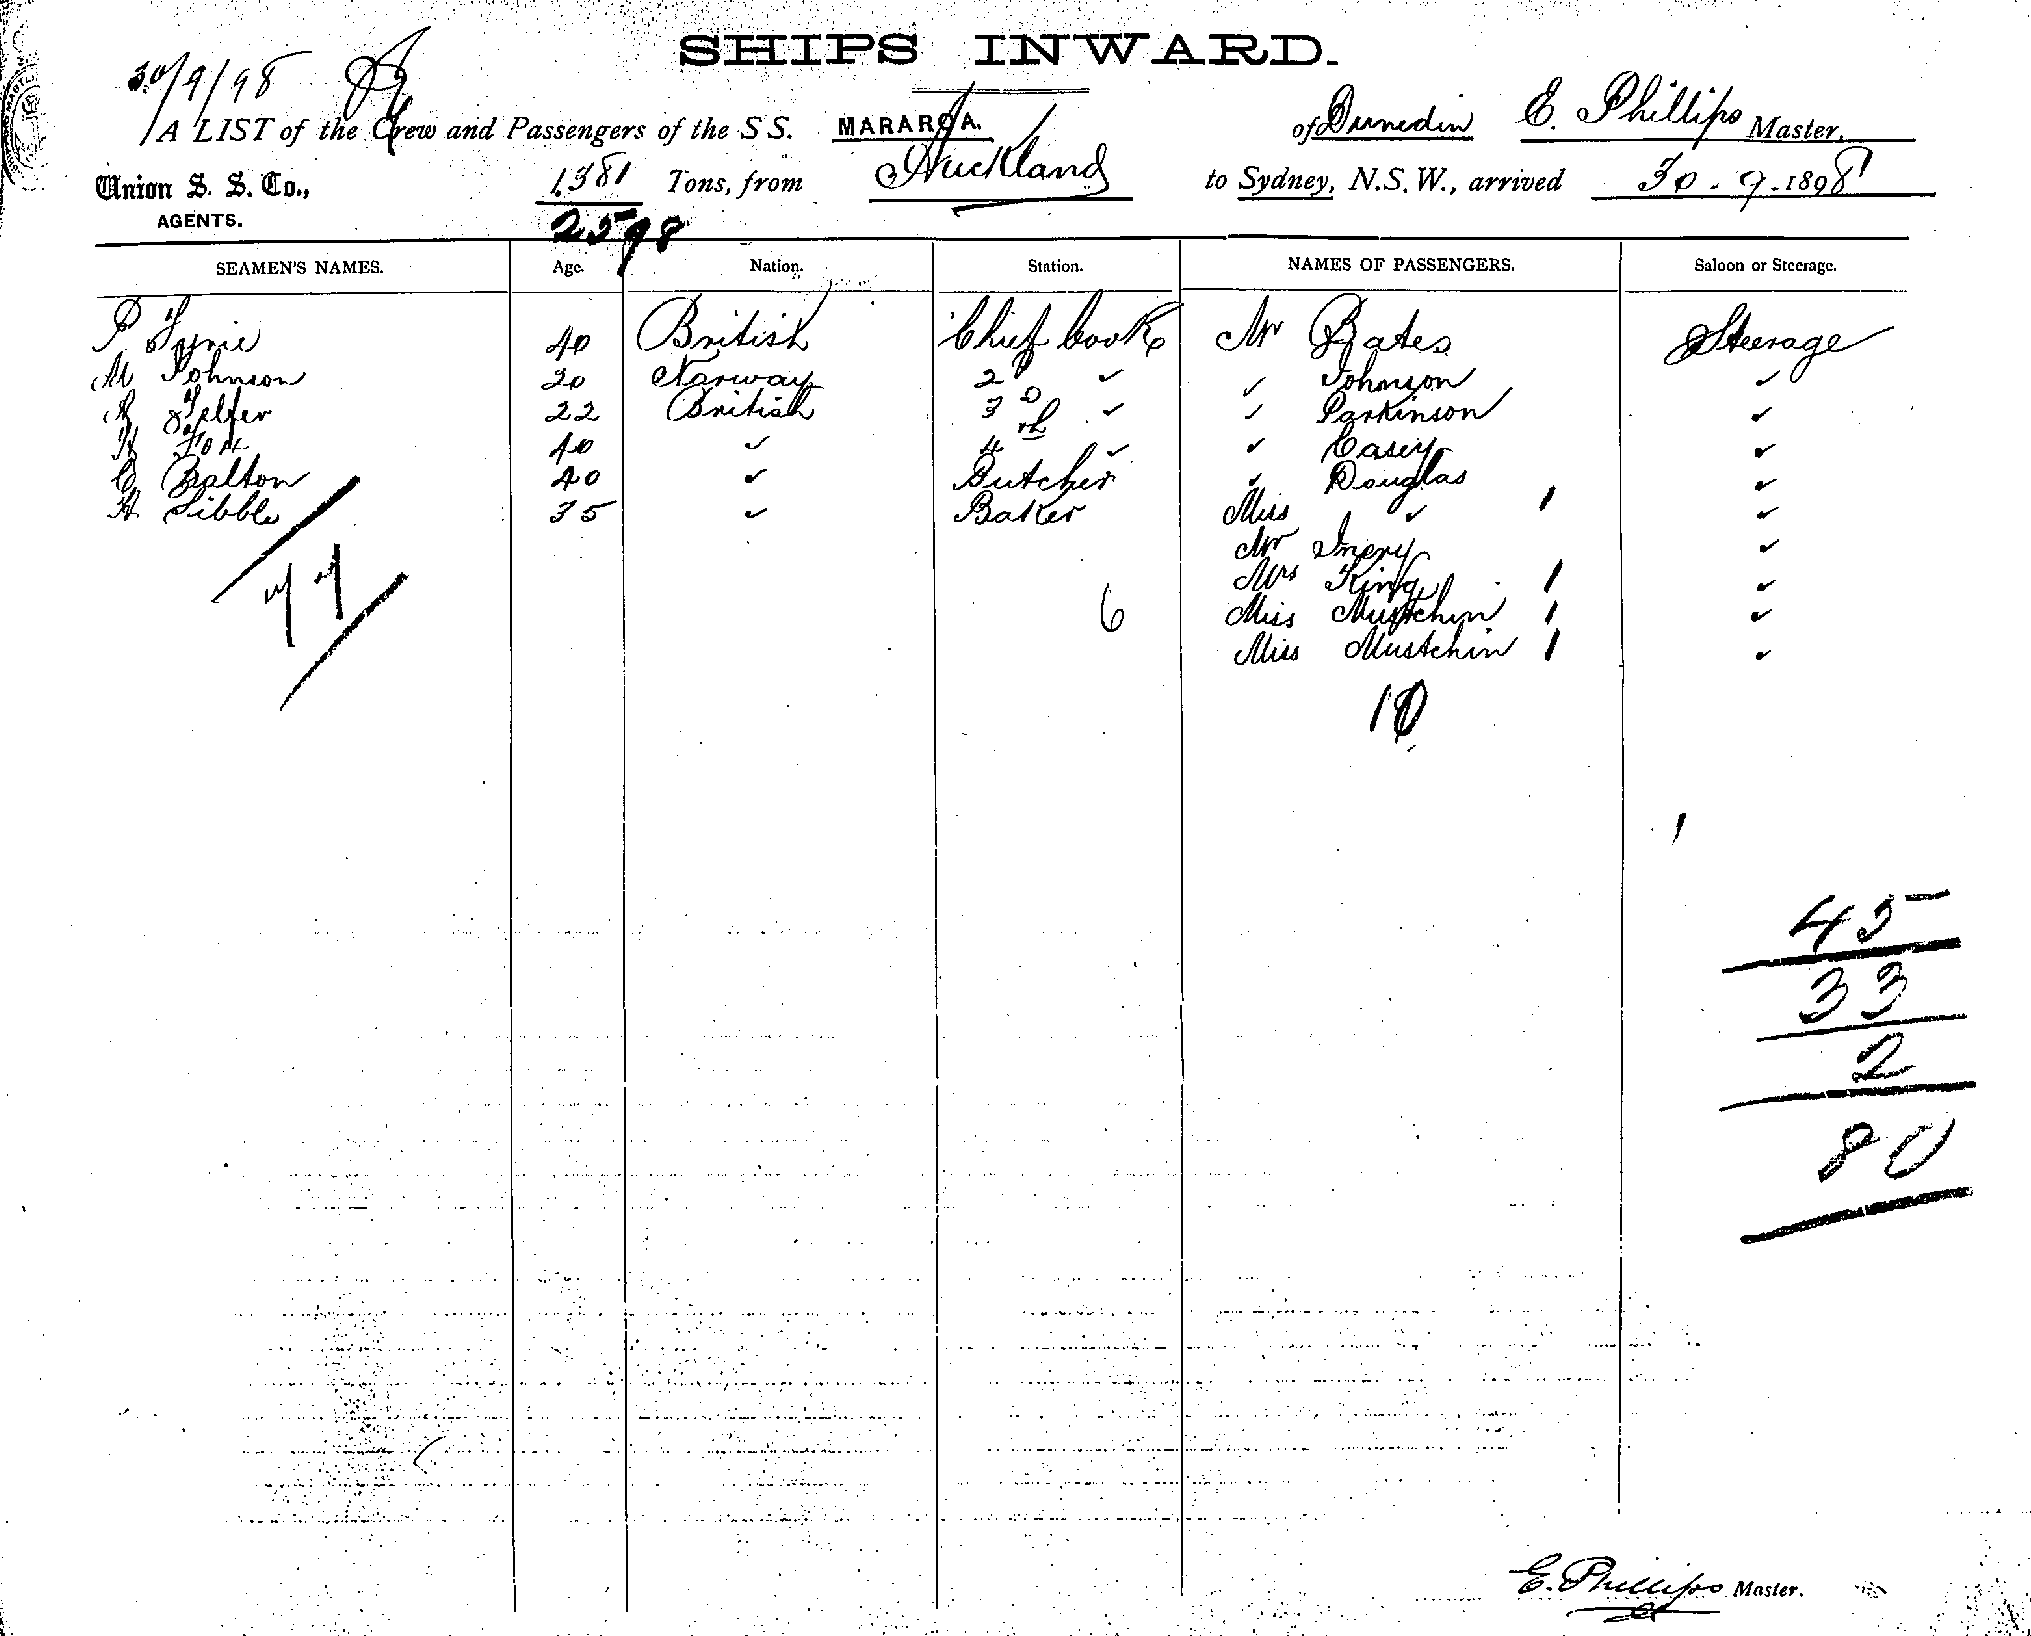 SHIPS INWARD.
30/9/98
A LIST of the Crew and Passengers of the S S. MARAROA. of Dunedin E. Phillips Master.
Union S. S. Co., 1381 Tons, from Auckland to Sydney, N.S.W., arrived 30.9.1898
AGENTS. 2598
SEAMEN'S NAMES. Age. Nation. Station. NAMES OF PASSENGERS. Saloon or Steerage.
P 40 British Chief Cook Mr Bates Steerage
M Johnson 20 Norway 2 ✓ ✓ Johnson ✓
Telfer 22 British 3 D ✓ ✓ Parkinson ✓
H Fox 40 ✓ 4 th ✓ ✓ Casey ✓
C Balton 40 ✓ Butcher ✓ Douglas ✓
H. Sibble 35 ✓ Baker Miss ✓ ✓
Mr ✓
77 Mrs King ✓
6 Miss Mustchin ✓
Miss Mustchin ✓
10
45
33
2
80
E. Phillips Master.